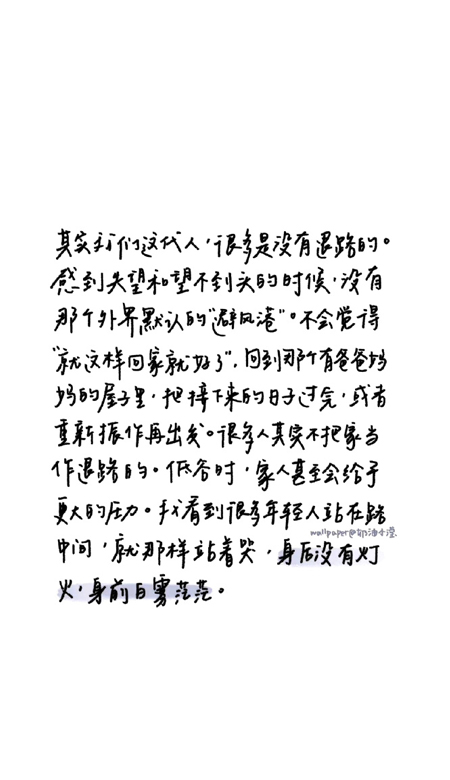 其实我们这代人,很多是没有退路的。
感到失望和望不到头的时候,没有
那个外界默认的"避风港"。不会觉得
"就这样回家就好了",回到那个有爸爸妈
妈的屋子里,把接下来的日子过完,或者
重新振作再出发。很多人其实不把家当
作退路的。低谷时,家人甚至会给予
更大的压力。我看到很多年轻人站在路
wallpaper@奶油小滢
中间,就那样站着哭,身后没有灯
火,身前白雾茫茫。